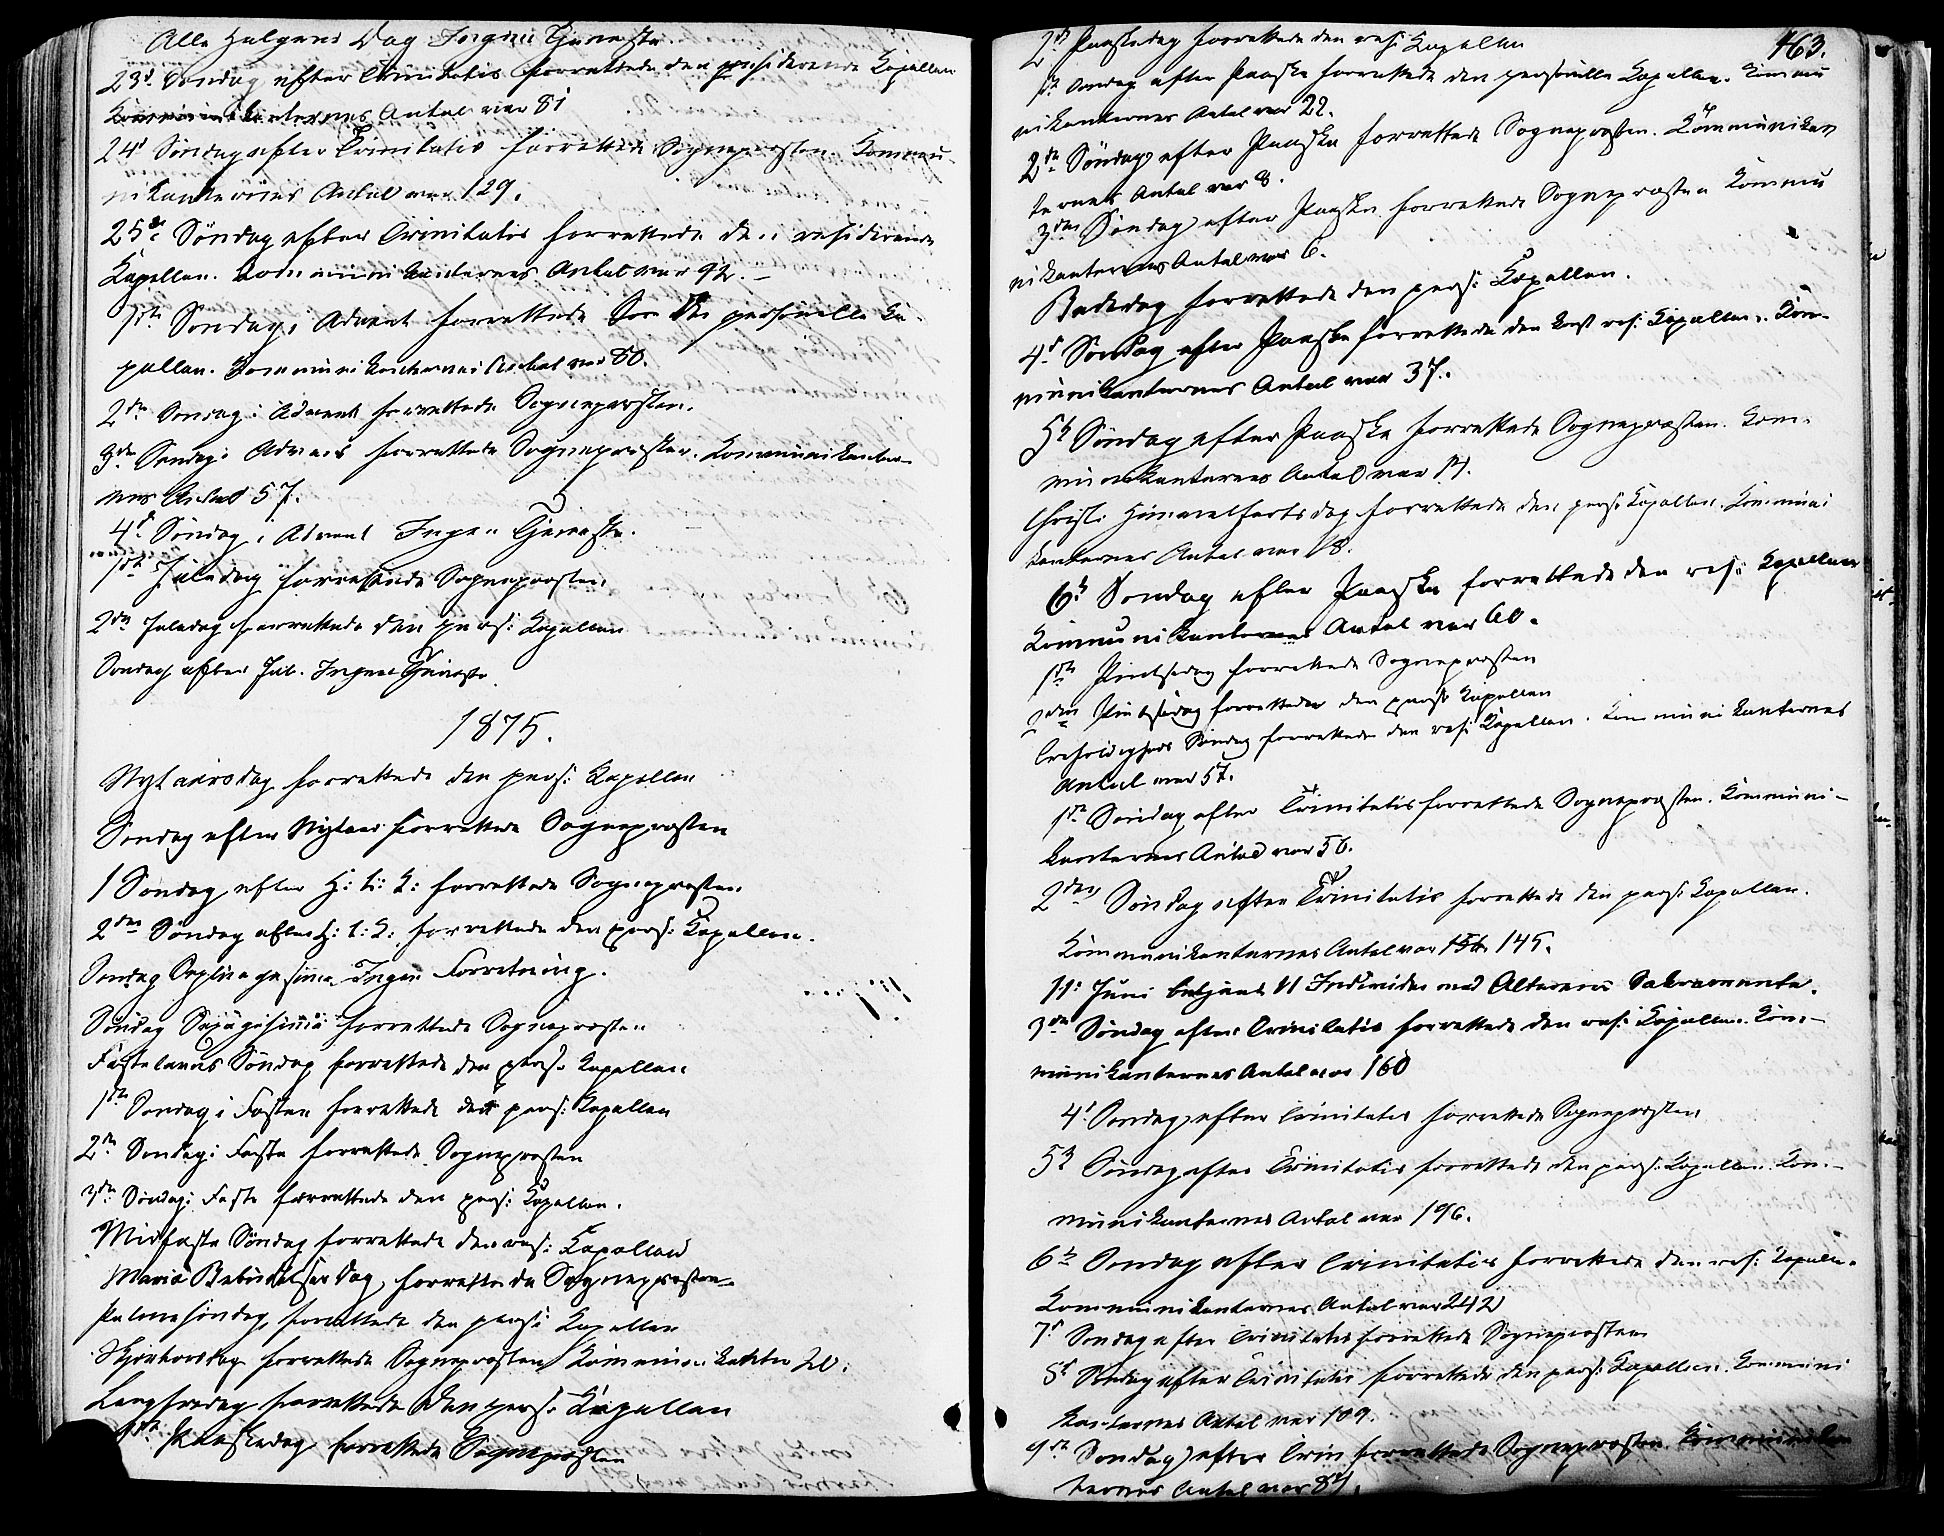 Alle Helgens Dag Ingen Tjeneste.
23d Søndag efter Trinitatis forrettede den residerende Kapellan
Kommunikanternes Antal var 81
24d Søndag efter Trinitatis forrettede Sognepresten. Kommu-
nikanternes Antal var 129.
25de Søndag efter Trinitatis forrettede den residerende
Kapellan. Kommunikanternes Antal var 92.-
1ste Søndag i Advent forrettede den personelle Ka-
pellan. Kommunikanternes Antal var 80.
2den Søndag i Advent forrettede Sognepresten.
3die Søndag i Advent forrettede Sognepresten. Kommunikanter-
nes Antal 57.
4d Søndag i Advent Ingen Tjeneste.
1ste Juledag forrettede Sognepresten.
2den Juledag forrettede den pers: Kapellan
Søndag efter Jul. Ingen Tjeneste.
1875.
Nytaarsdag forrettede den pers: Kapellan
Søndag efter Nytaar forrettede Sognepresten
1 Søndag efter H: t: K: forrettede Sognepresten.
2den Søndag efter H: t: K: forrettede den pers: Kapellan.
Søndag Septuagesima Ingen Forretning.
Søndag Sexagesima forrettede Sognepresten
Fastelavns Søndag forrettede den pers: Kapellan.
1ste Søndag i Fasten forrettede den pers: Kapellan
2den Søndag i Faste forrettede Sognepresten
3die Søndag i Faste forrettede den pers: Kapellan.
Midfaste Søndag forrettede den res: Kapellan
Mariæ Bebudelses Dag, forrettede Sognepresten
Palmesøndag, forrettede den pers: Kapellan
Skjærtorsdag forrettede Sognepresten Kommunikanter 20.
Langfredag forrettede den pers: Kapellan
1ste Paaskedag forrettede Sognepresten
463.
2d Paaskedag forrettede den res: Kapellan
1st Søndag efter Paaske forrettede den personelle Kapellan. Kommu
nikanternes Antal var 22.
2den Søndag efter Paaske forrettede Sognepresten. Kommunikan
ternes Antal var 8.
3die Søndag efter Paaske forrettede Sognepresten Kommu
nikanternes Antal var 6.
Bededag forrettede den pers: Kapellan.
4d Søndag efter Paaske forrettede den res: Kapellan. Kom-
munikanternes Antal var 37.
5te Søndag efter Paaske forrettede Sognepresten. Kom-
munikanternes Antal var 14.
Christi Himmelfartsdag forrettede den pers: Kapellan. Kommuni
kanternes Antal var 18.
6te Søndag efter Paaske forrettede den res: Kapellan
Kommunikanternes Antal var 60.
1ste Pintsedag forrettede Sognepresten
2den Pintsedag forrettede den pers: Kapellan
Trefoldigheds Søndag forrettede den res: Kapellan. Kommunikanternes
Antal var 57.
1ste Søndag efter Trinitatis forrettede Sognepresten. Kommuni-
kanternes Antal var 56.
2den Søndag efter Trinitatis forrettede den pers: Kapellan.
Kommunikanternes Antal var 145.
11: Juni betjent 11 Individer med Alterens Sakramente.
3die Søndag efter Trinitatis forrettede den res: Kapellan. Kom-
munikanternes Antal var 160
4d Søndag efter Trinitatis forrettede Sognepresten
5te Søndag efter Trinitatis forrettede den pers: Kapellan. Kom-
munikanternes Antal var 196.
6te Søndag efter Trinitatis forrettede den res: Kapellan.
Kommunikanternes Antal var 242
7d Søndag efter Trinitatis forrettede Sognepresten
8d Søndag efter Trinitatis forrettede den pers: Kapellan. Kommuni
kanternes Antal var 109.
9de Søndag efter Trin forrettede Sognepresten. Kommunikan
ternes Antal var 84.